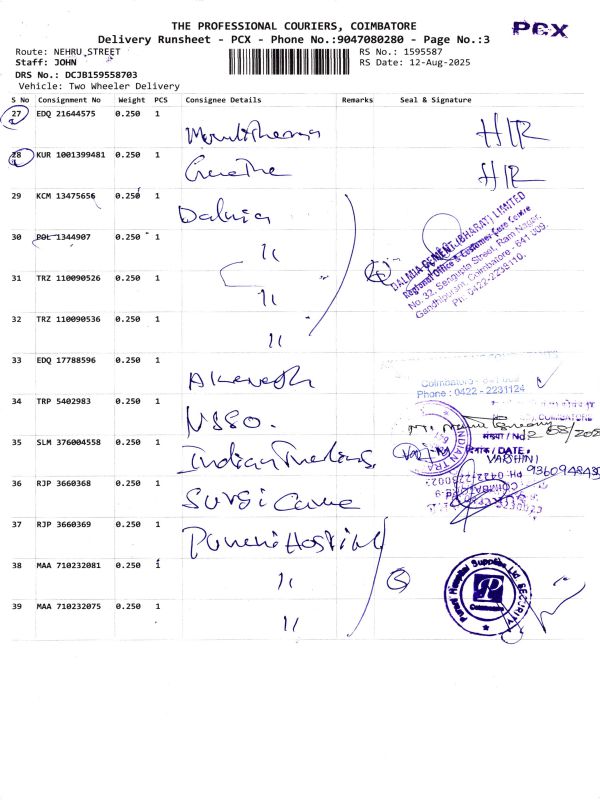 THE PROFESSIONAL COURIERS, COIMBATORE
PCX
Delivery Runsheet - PCX - Phone No.:9047080280 - Page No.:3
Route: NEHRU STREET
RS No.: 1595587
Staff: JOHN
RS Date: 12-Aug-2025
DRS No.: DCJB159558703
Vehicle: Two Wheeler Delivery
S No Consignment No Weight PCS Consignee Details Remarks Seal & Signature
27 EDQ 21644575 0.250 1
28 KUR 1001399481 0.250 1
29 KCM 13475656 0.250 1 Dalmia
30 POL 1344907 0.250 1 "
31 TRZ 110090526 0.250 1 "
32 TRZ 110090536 0.250 1 "
DALMIA CEMENT (BHARAT) LIMITED
Regional Office & Customer Care Centre
No. 32, Sengupta Street, Ram Nagar,
Gandhipuram, Coimbatore - 641 009.
Ph: 0422-2238110.
33 EDQ 17788596 0.250 1
Phone : 0422 - 2231124
34 TRP 5402983 0.250 1 NSSO.
COIMBATORE
35 SLM 376004558 0.250 1 Indian
संख्या / No
दिनांक / DATE
VARSHINI
36 RJP 3660368 0.250 1 Surgi Care
37 RJP 3660369 0.250 1
38 MAA 710232081 0.250 1 "
39 MAA 710232075 0.250 1 "